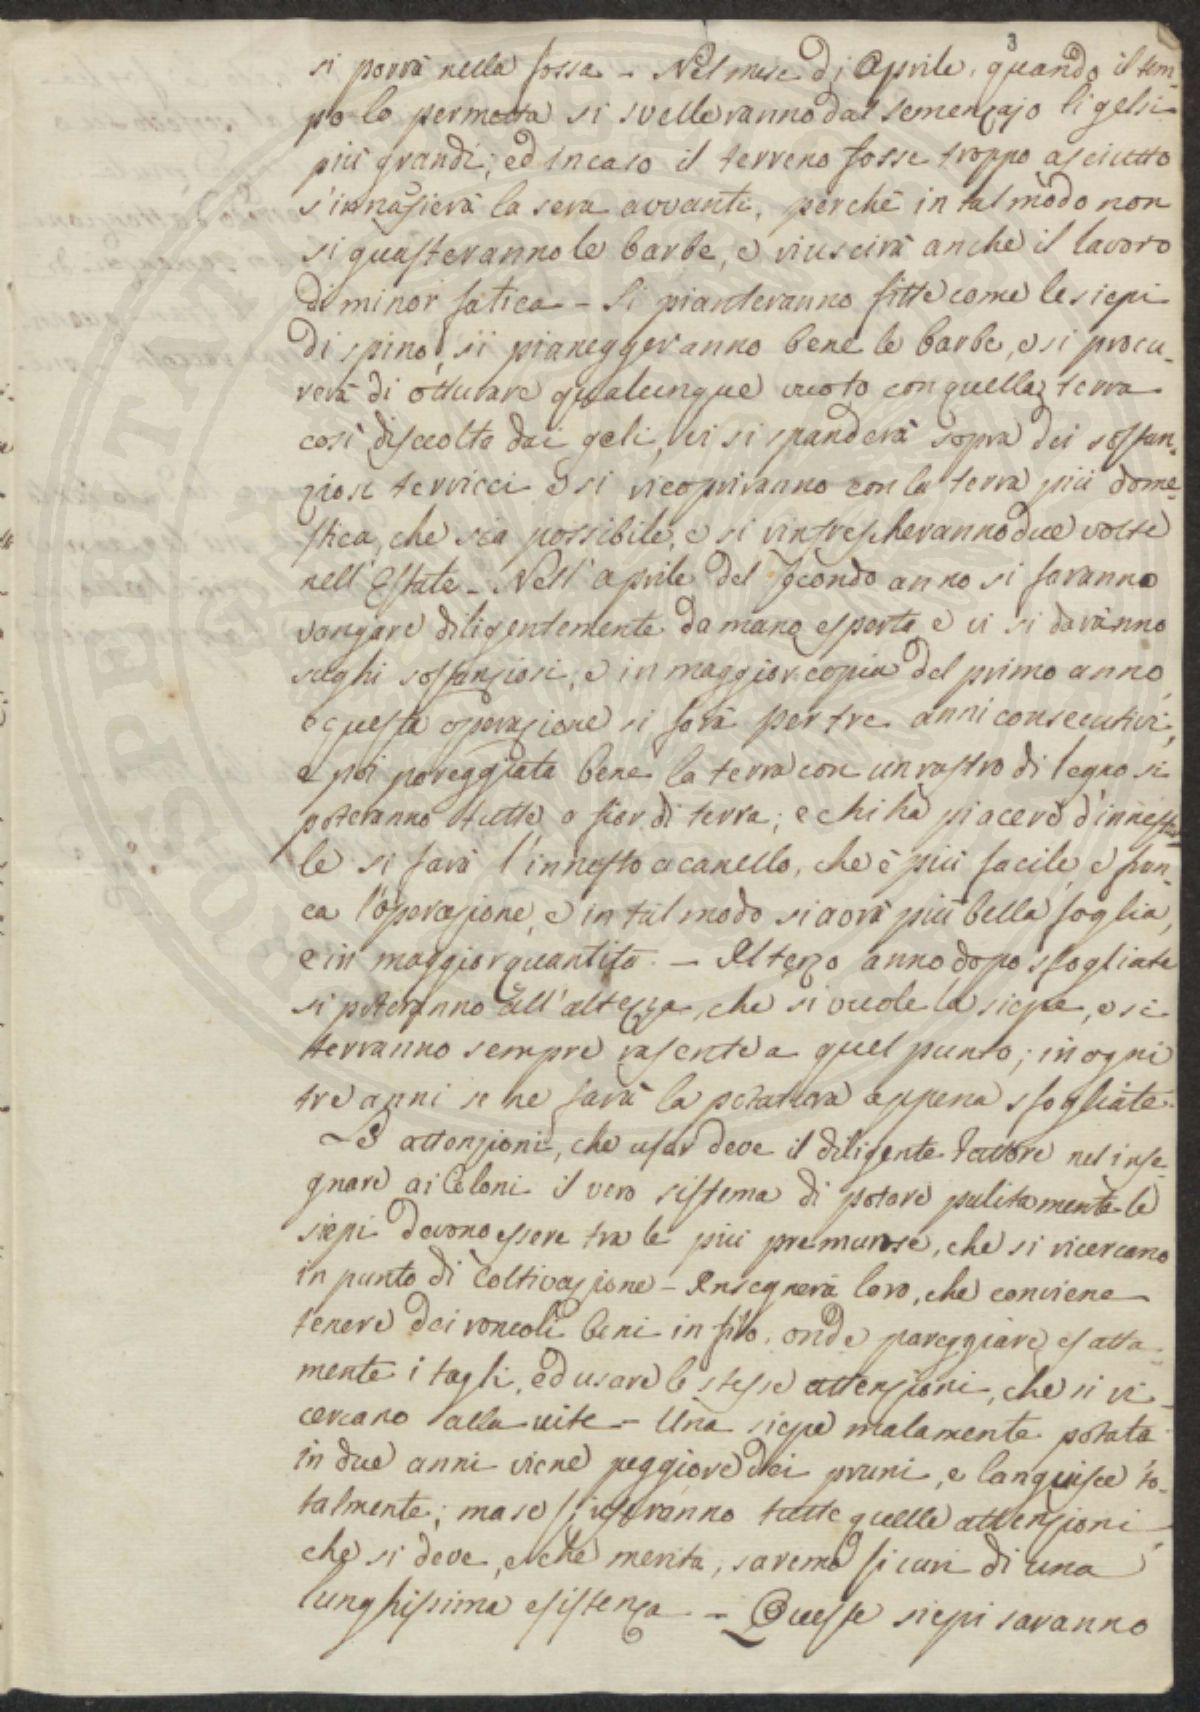 3
si porrà nella fossa - Nel mese di Aprile, quando il tem-
po lo permetta si svelleranno dal semenzajo li gelsi
più grandi; ed in caso il terreno fosse troppo asciutto
s'innafierà la sera avvanti, perchè in tal modo non
si guasteranno le barbe, e riuscirà anche il lavoro
di minor fatica - Si pianteranno fitte come le siepi
di spino, si pianeggeranno bene le barbe, e si procu-
rerà di otturare qualunque vuoto con quella terra
così discolta dai geli, vi si spanderà sopra dei sostan-
ziosi terricci e si ricopriranno con la terra più dome-
stica, che sia possibile, e si rinfrescheranno due volte
nell'Estate - Nell'aprile del secondo anno si faranno
vangare diligentemente da mano esperta e vi si daranno
sughi sostanziosi, e in maggior copia del primo anno,
e questa operazione si farà per tre anni consecutivi,
e poi pareggiata bene la terra con un rastro di legno si
poteranno tutte a fior di terra; e chi ha piacere d'innestar
le si farà l'innesto a canello, che è più facile, e fran-
ca l'operazione, e in tal modo si avrà più bella foglia,
e in maggior quantità. - Al terzo anno dopo sfogliate
si poteranno all'altezza, che si vuole la siepe, e si
terranno sempre rasente a quel punto; in ogni
tre anni se ne farà la potatura appena sfogliate.
Le attenzioni, che usar deve il diligente Fattore nel inse-
gnare ai Coloni il vero sistema di potare pulitamente le
siepi devono essere tra le più premurose, che si ricercano
in punto di Coltivazione - Insegnerà loro, che conviene
tenere dei roncoli beni in filo, onde pareggiare esatta-
mente i tagli, ed usare le stesse attenzioni, che si ri-
cercano alla vite - Una siepe malamente potata
in due anni viene peggiore dei pruni, e languisce to-
talmente; ma se si useranno tutte quelle attenzioni
che si deve, e che merita, saremo sicuri di una
lunghissima esistenza - Queste siepi saranno